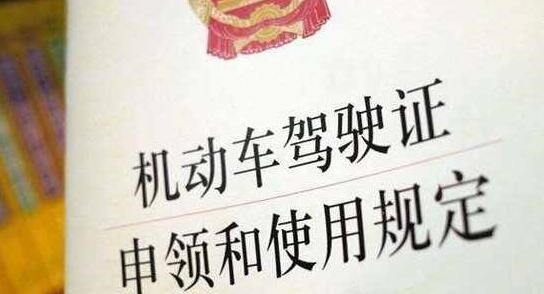 机动车驾驶证
申领和使用规定